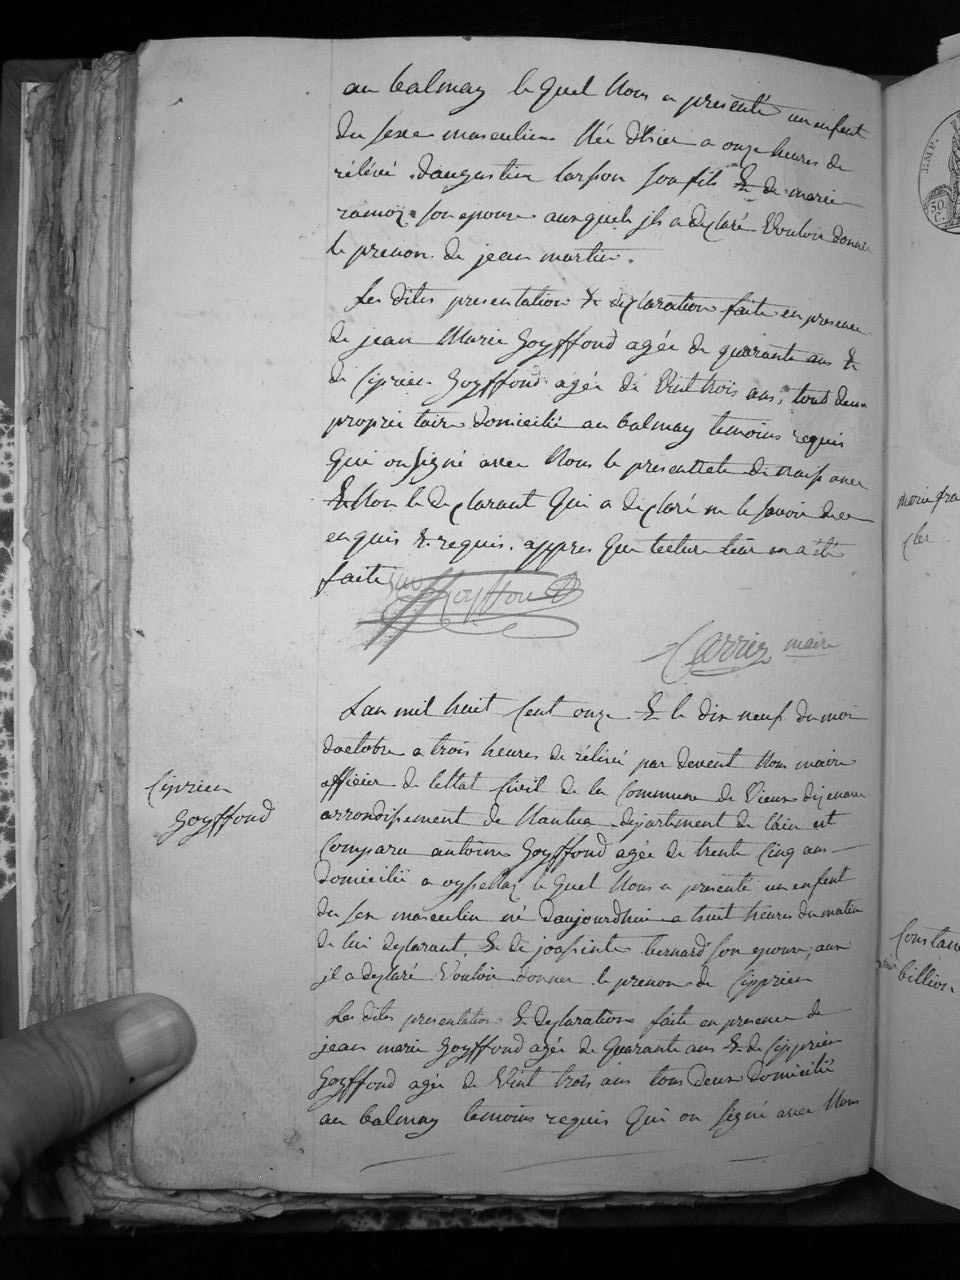 au balmay le quel Nous a presenté un enfant
du sexe masculin Née d'hier a onze heures de
rélévé d'augustin son fils & de marie
ramoz son epouse auxquels jls a déclaré Vouloir donner
le prenon de jean martin.
Les dites presentation & declaration faite en presence
de jean Marie Goyffond agée de quarante ans &
de Ciprien Goyffond agée de Vint trois ans, tout deux
proprietaire domicilié au balmay temoins requis
qui on signé avec Nous le present acte de naissance
& Non le declarant Qui a déclaré ne le savoir de ce
enquis & requis. appres que lecture leur en a été
faite
Goyffond
Carrier maire
Lan mil huit Cent onze & le dix neuf du moi
doctobre a trois heures de rélévé par devent Nous maire
officier de lettat Civil de la Commune de Vieux dizenave
arrondissement de Nantua département de lain est
Comparu antoine Goyffond agée de trente Cinq ans
domicilié a oyssellaz le quel Nous a presenté un enfant
du sex masculin né daujourdhui a huit heures du matin
de lui declarant & de joaspinte bernard son epouse, aux
jl a déclaré Vouloir donner le prenon de Cipprien
Les dites presentation & declaration faite en presence de
jean marie Goyffond agée de Quarante ans & de Cipprien
Goyffond agée de Vint trois ans tous deux domicilié
au balmay temoins requis Qui on signé avec Nous
Ciprien
Goyffond
EMP.
50.
C.
marie fra
cler
Constan
billion